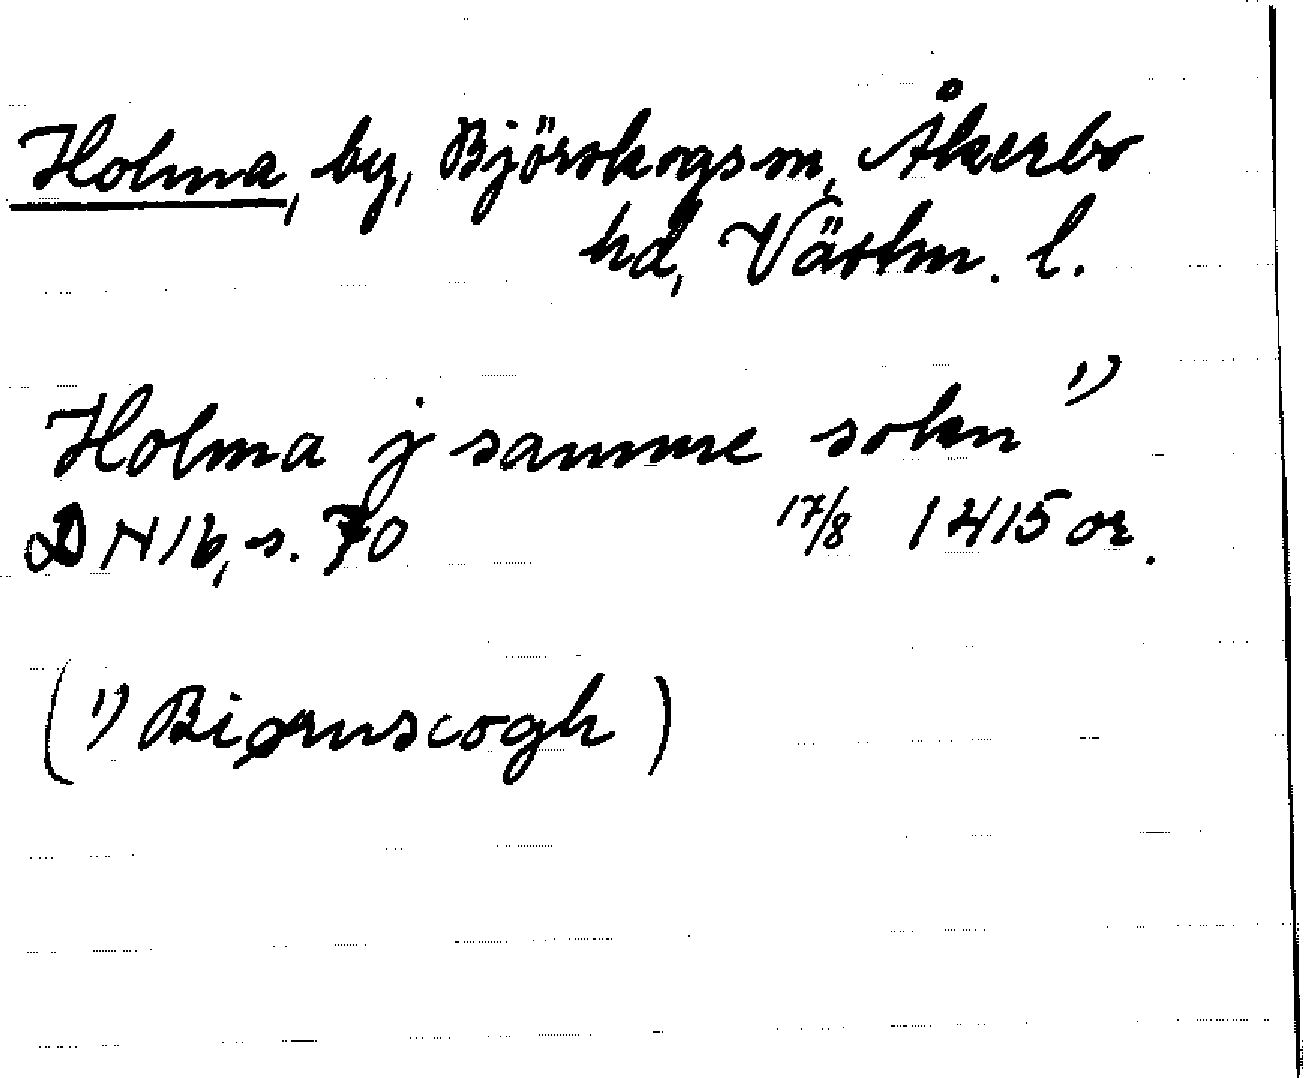 Holma, by, Björskogs sn, Åkerbo
hd, Västm. l.
Holma j samme sokn 1)
DN 16, s. 70 17/8 1415 or.
(1) Biørnscogh)